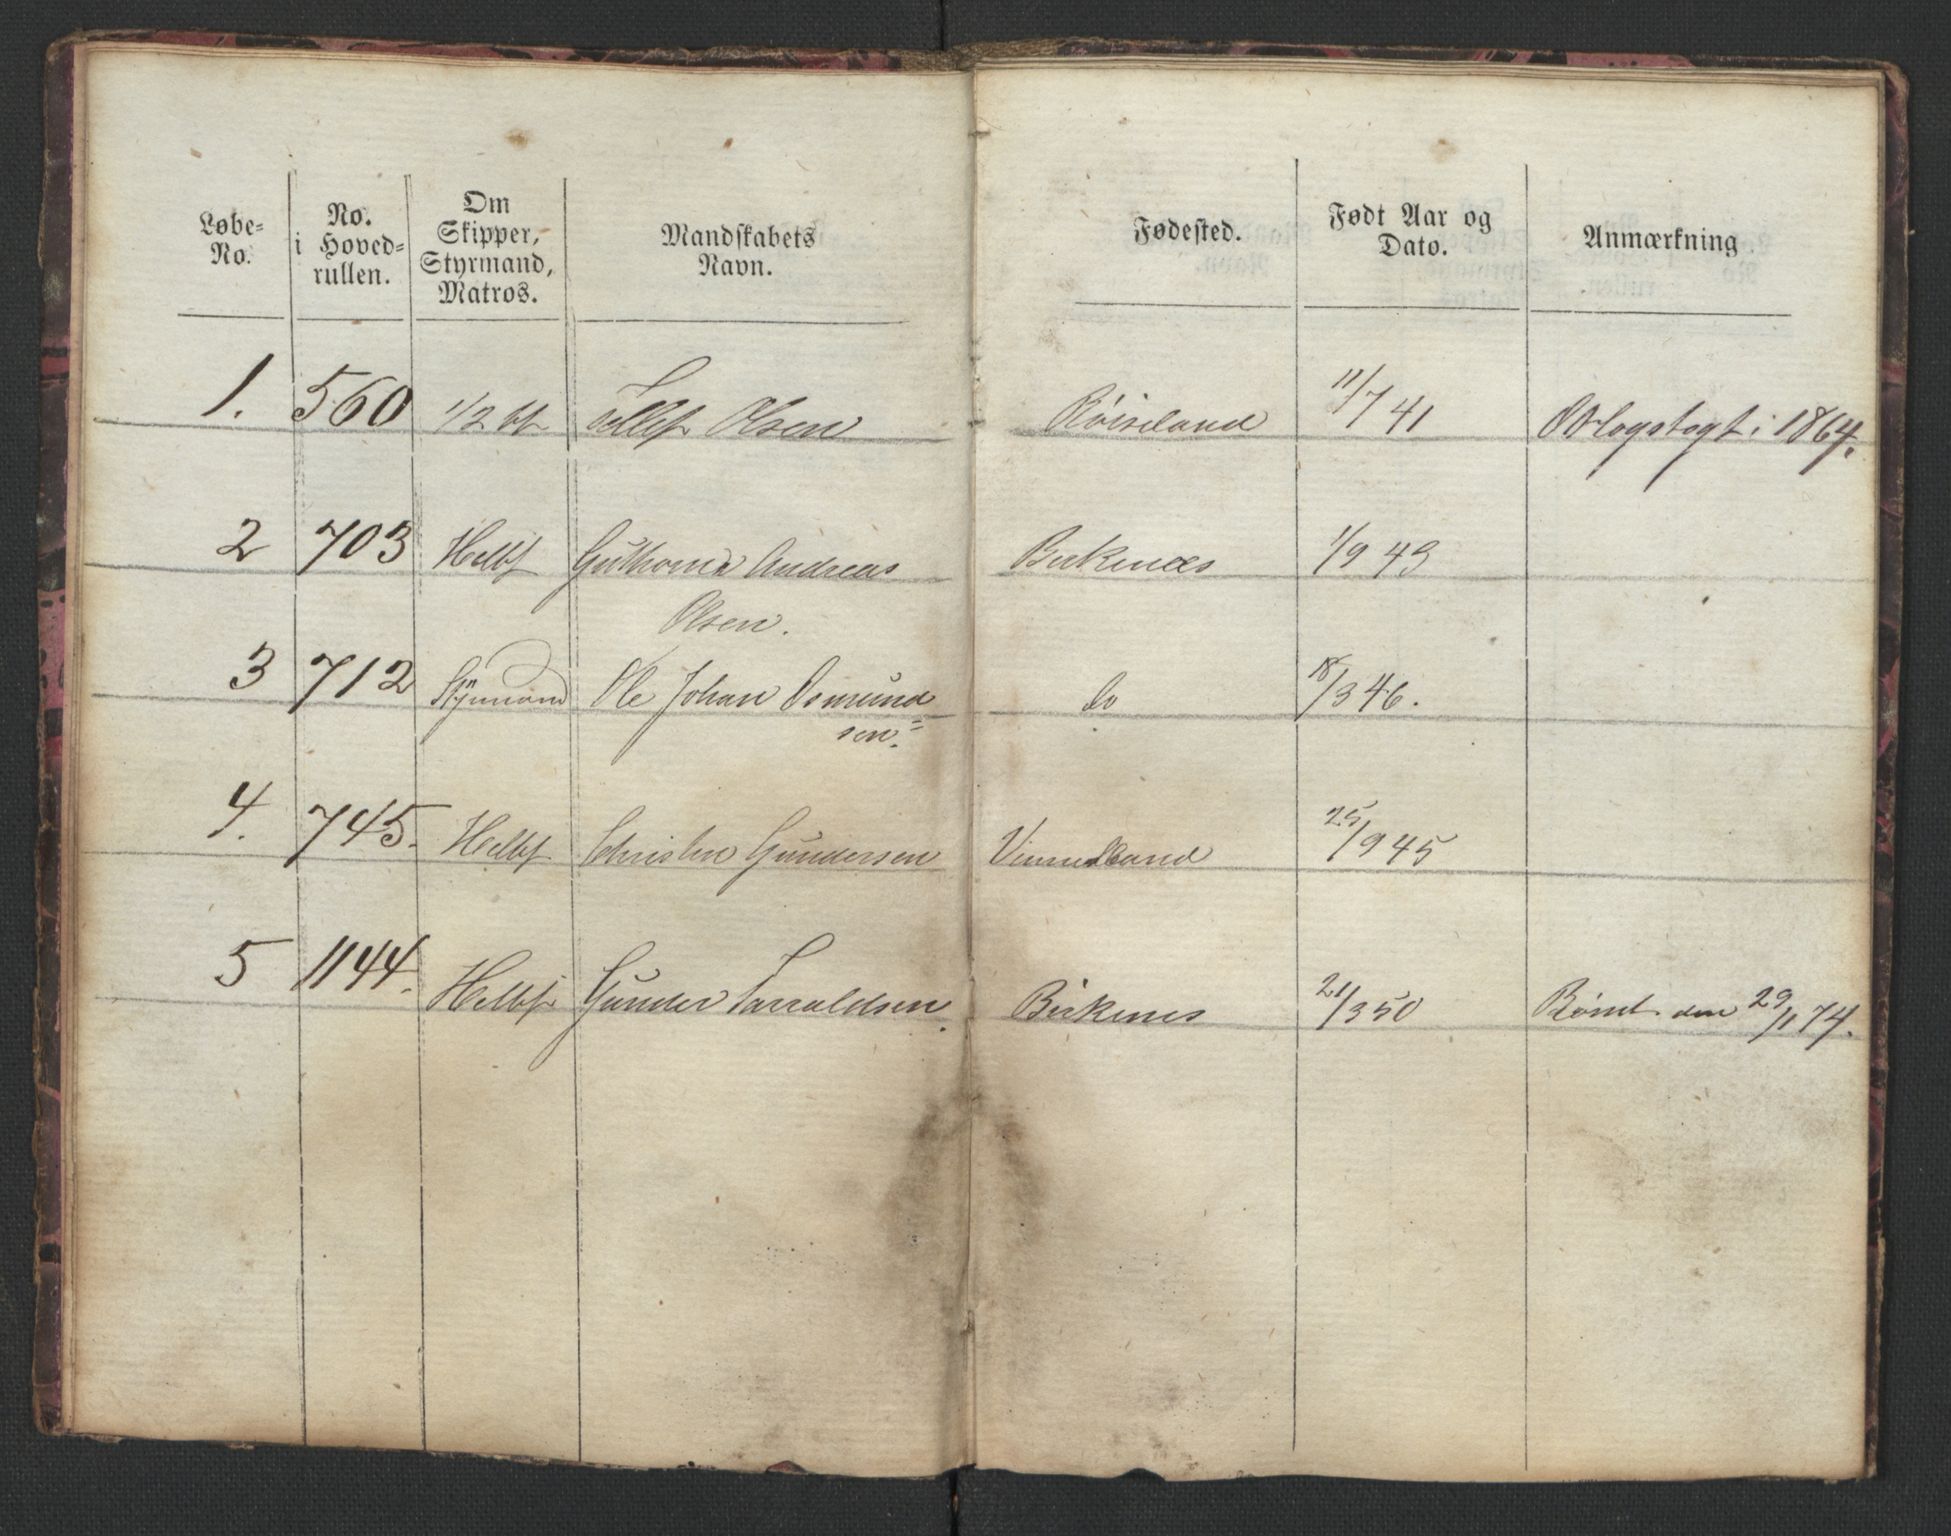 Løbe-
No.
No.
i Hoved-
rullen.
Om
Skipper,
Styrmand,
Matros.
Mandskabets
Navn.
Fødested.
Født Aar og
Dato.
Anmærkning
1. 560 1/2 bf Tellef Olsen Røiseland 11/7 41 Orlogstogt i 1864.
2 703 Helbf Guthorm Andreas Birkenæs 1/9 43
Olsen.
3 712 Styrmand Ole Johan Osmund= do 18/3 46.
sen.
4. 745. Helbf Christen Gundersen 25/9 45
5 1144. Helbf Gunder Tarraldsen. Birkenes 21/3 50 Rømt den 29/1 74.